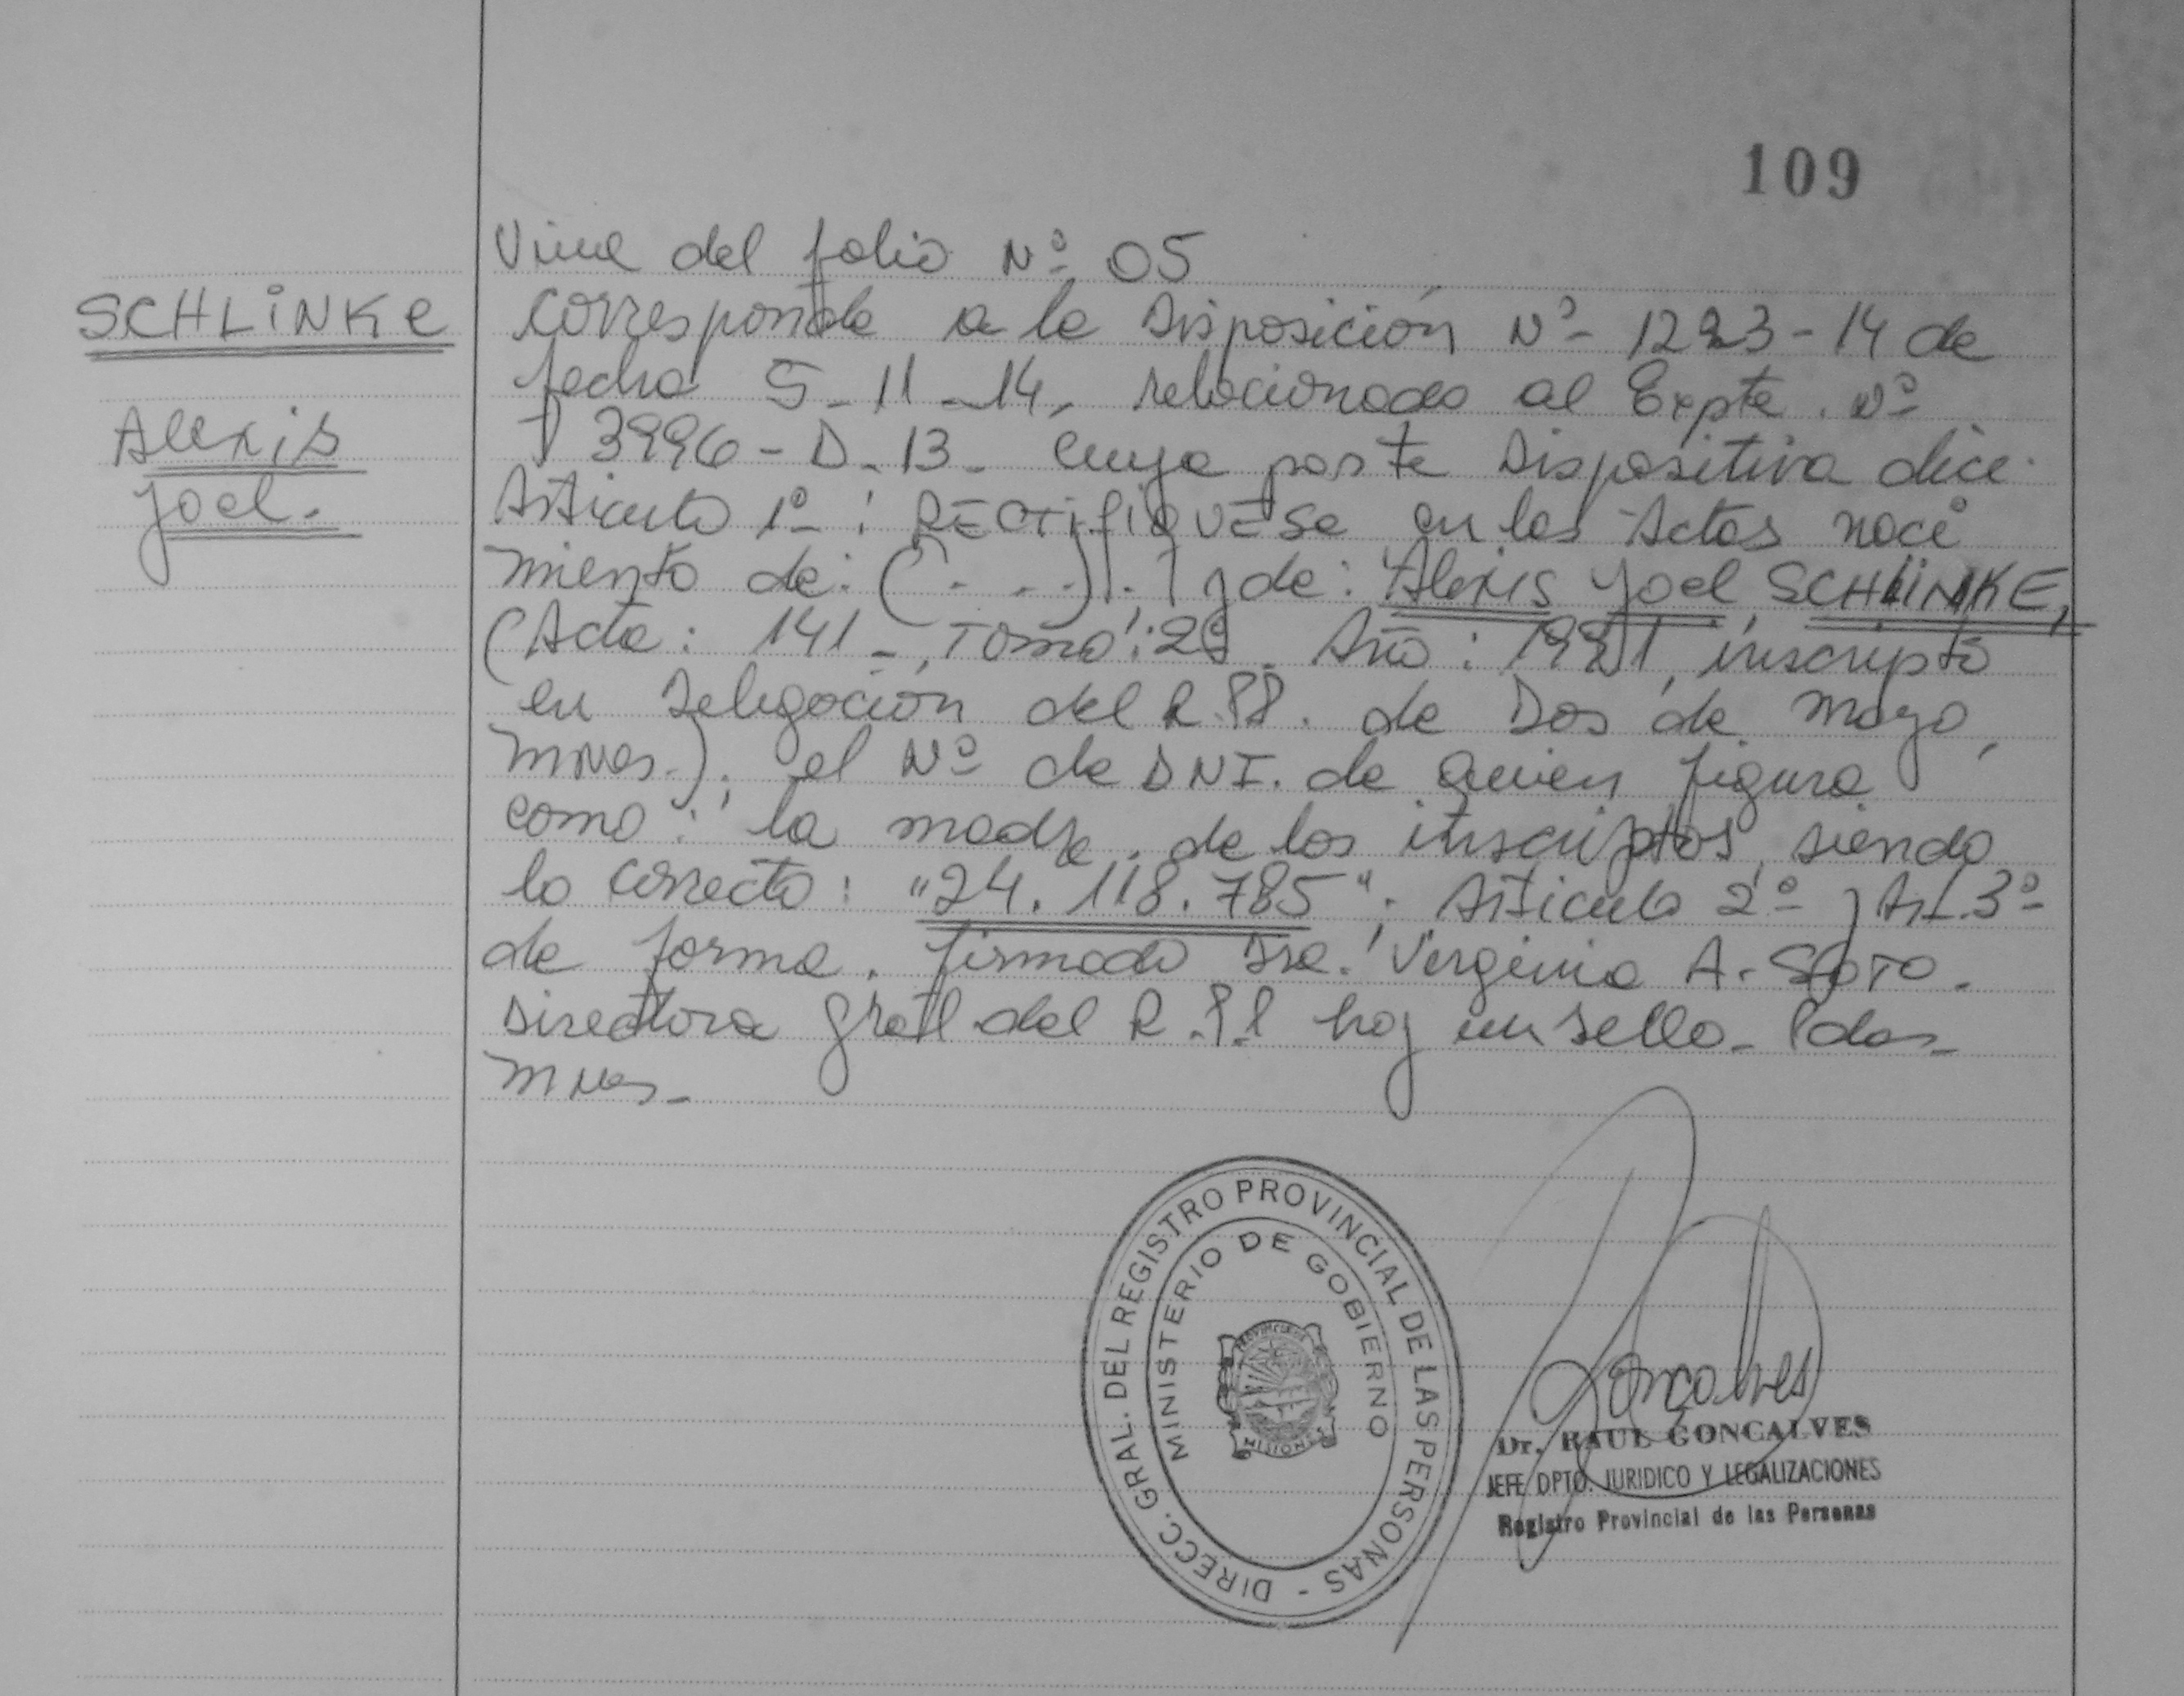 109
SCHLINKE
Alexis
Joel.
Viene del folio Nº 05
Corresponde a la Disposición Nº 1223-14 de
fecha 5-11-14, relacionado al Expte. Nº
3996-D-13- cuya parte Dispositiva dice:
Articulo 1º: RECTIFIQUESE en las Actas naci
miento de: (. . .) y de: Alexis Joel SCHLINKE,
(Acta: 141-, Tomo: 2º Año: 1991, inscripto
en Delegación del R.P.P. de Dos de Mayo,
Mnes.); el Nº de DNI. de quien figura
como: la madre de los inscriptos, siendo
lo correcto: "24.118.785"; Articulo 2º y Art. 3º
de forma. firmado Dra. Virginia A. SOTO.
Directora Gral del R.P.P hay un sello- Pdas-
Mnes-
DIRECC. GRAL. DEL REGISTRO PROVINCIAL DE LAS PERSONAS -
MINISTERIO DE GOBIERNO
MISIONES
Gonçalves
Dr. RAUL GONCALVES
JEFE DPTO. JURIDICO Y LEGALIZACIONES
Registro Provincial de las Personas